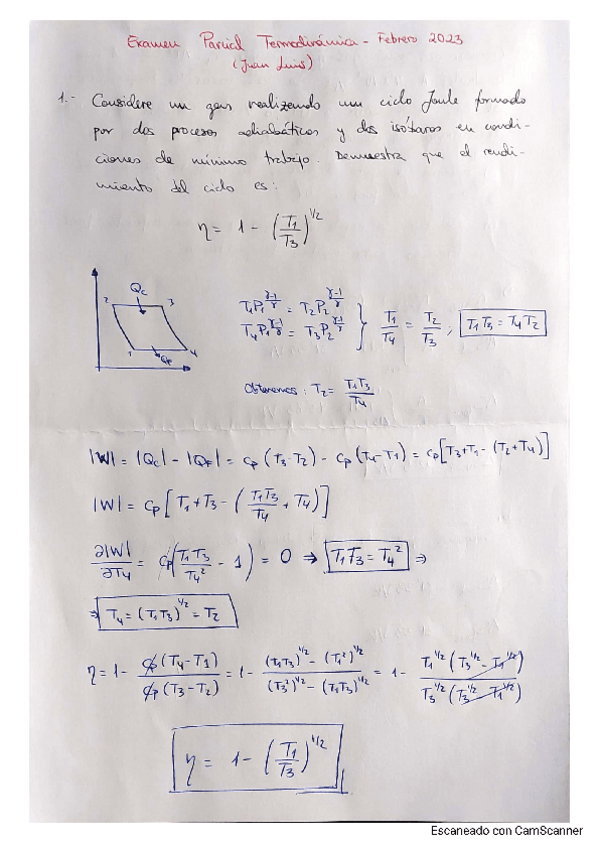 Examen Parcial Termodinámica - Febrero 2023
(Juan Luis)
1.- Considere un gas realizando un ciclo Joule formado
por dos procesos adiabáticos y dos isóbaros en condi-
ciones de mínimo trabajo. Demuestra que el rendi-
miento del ciclo es:
η = 1 - (T1/T3)^1/2
Qc
2 3
1 4
QF
T1P1^(γ-1/γ) = T2P2^(γ-1/γ)
T4P1^(γ-1/γ) = T3P2^(γ-1/γ) } T1/T4 = T2/T3 ; T1T3 = T4T2
Obtenemos: T2 = T1T3/T4
|W| = |Qc| - |QF| = cp(T3-T2) - cp(T4-T1) = cp[T3+T1-(T2+T4)]
|W| = cp[T1+T3-(T1T3/T4+T4)]
∂|W|/∂T4 = cp(T1T3/T4² - 1) = 0 ⇒ T1T3 = T4² ⇒
⇒ T4 = (T1T3)^1/2 = T2
η = 1 - cp(T4-T1)/cp(T3-T2) = 1 - (T1T3)^1/2 - (T1²)^1/2/(T3²)^1/2 - (T1T3)^1/2 = 1 - T1^1/2(T3^1/2 - T1^1/2)/T3^1/2(T3^1/2 - T1^1/2)
η = 1 - (T1/T3)^1/2
Escaneado con CamScanner